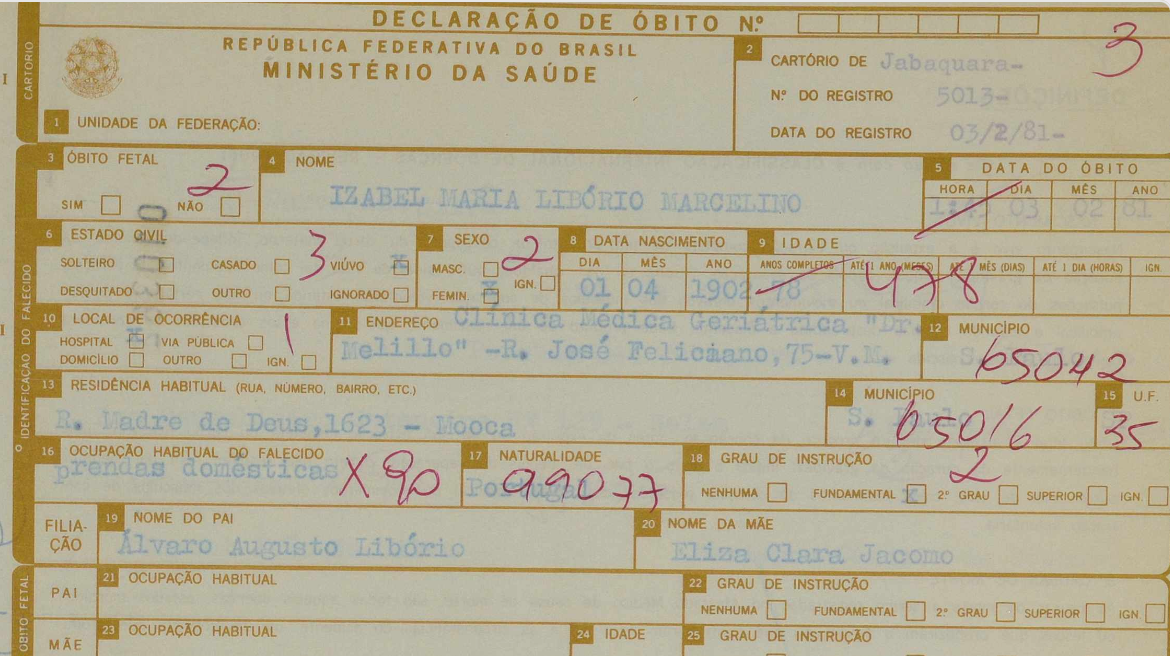 DECLARAÇÃO DE ÓBITO N.º
3
CARTÓRIO
REPÚBLICA FEDERATIVA DO BRASIL
MINISTÉRIO DA SAÚDE
1 UNIDADE DA FEDERAÇÃO:
2 CARTÓRIO DE Jabaquara-
N.º DO REGISTRO 5013-
DATA DO REGISTRO 03/2/81-
IDENTIFICAÇÃO DO FALECIDO
3 ÓBITO FETAL
SIM NÃO 2
4 NOME
IZABEL MARIA LIBÓRIO MARCELINO
5 DATA DO ÓBITO
HORA DIA MÊS ANO
1:45 03 02 81
6 ESTADO CIVIL 3
SOLTEIRO CASADO VIÚVO x
DESQUITADO OUTRO IGNORADO
7 SEXO 2
MASC. IGN.
FEMIN. x
8 DATA NASCIMENTO
DIA MÊS ANO
01 04 1902
9 IDADE
ANOS COMPLETOS ATÉ 1 ANO (MESES) ATÉ 1 MÊS (DIAS) ATÉ 1 DIA (HORAS) IGN.
78 478
10 LOCAL DE OCORRÊNCIA 1
HOSPITAL x VIA PÚBLICA
DOMICÍLIO OUTRO IGN.
11 ENDEREÇO Clínica Médica Geriátrica "Dr.
Melillo" -R. José Feliciano,75-V.M.
12 MUNICÍPIO
S. Paulo 65042
13 RESIDÊNCIA HABITUAL (RUA, NÚMERO, BAIRRO, ETC.)
R. Madre de Deus,1623 - Mooca
14 MUNICÍPIO
S. Paulo 65016
15 U.F.
35
16 OCUPAÇÃO HABITUAL DO FALECIDO
prendas domésticas X90
17 NATURALIDADE
Portugal 99077
18 GRAU DE INSTRUÇÃO 2
NENHUMA FUNDAMENTAL x 2º GRAU SUPERIOR IGN.
FILIA-
ÇÃO
19 NOME DO PAI
Álvaro Augusto Libório
20 NOME DA MÃE
Eliza Clara Jacomo
ÓBITO FETAL
PAI
21 OCUPAÇÃO HABITUAL
22 GRAU DE INSTRUÇÃO
NENHUMA FUNDAMENTAL 2º GRAU SUPERIOR IGN.
MÃE
23 OCUPAÇÃO HABITUAL
24 IDADE
25 GRAU DE INSTRUÇÃO